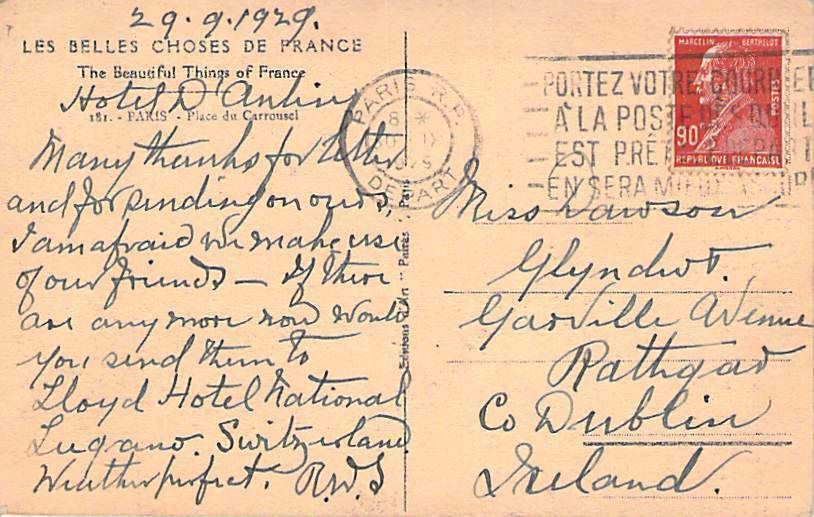 29.9.1929.
LES BELLES CHOSES DE FRANCE
The Beautiful Things of France
Hotel D'Antin
181. - PARIS - Place du Carrousel
Many thanks for letter
and for sending on ours,
I am afraid we make use
of our friends — If there
are any more now would
you send them to
Lloyd Hotel National
Lugano. Switzerland
Weather perfect. R.W.S
Editions d'Art - Paris
PARIS R.P.
1929
DEPART
PORTEZ VOTRE COURRIER
À LA POSTE
EST PRÊT
EN SERA MIEUX
MARCELIN BERTHELOT
POSTES
90
REPUBLIQUE FRANCAISE
Miss Dawson
Glyndwr.
Garville Avenue
Rathgar
Co Dublin
Ireland.